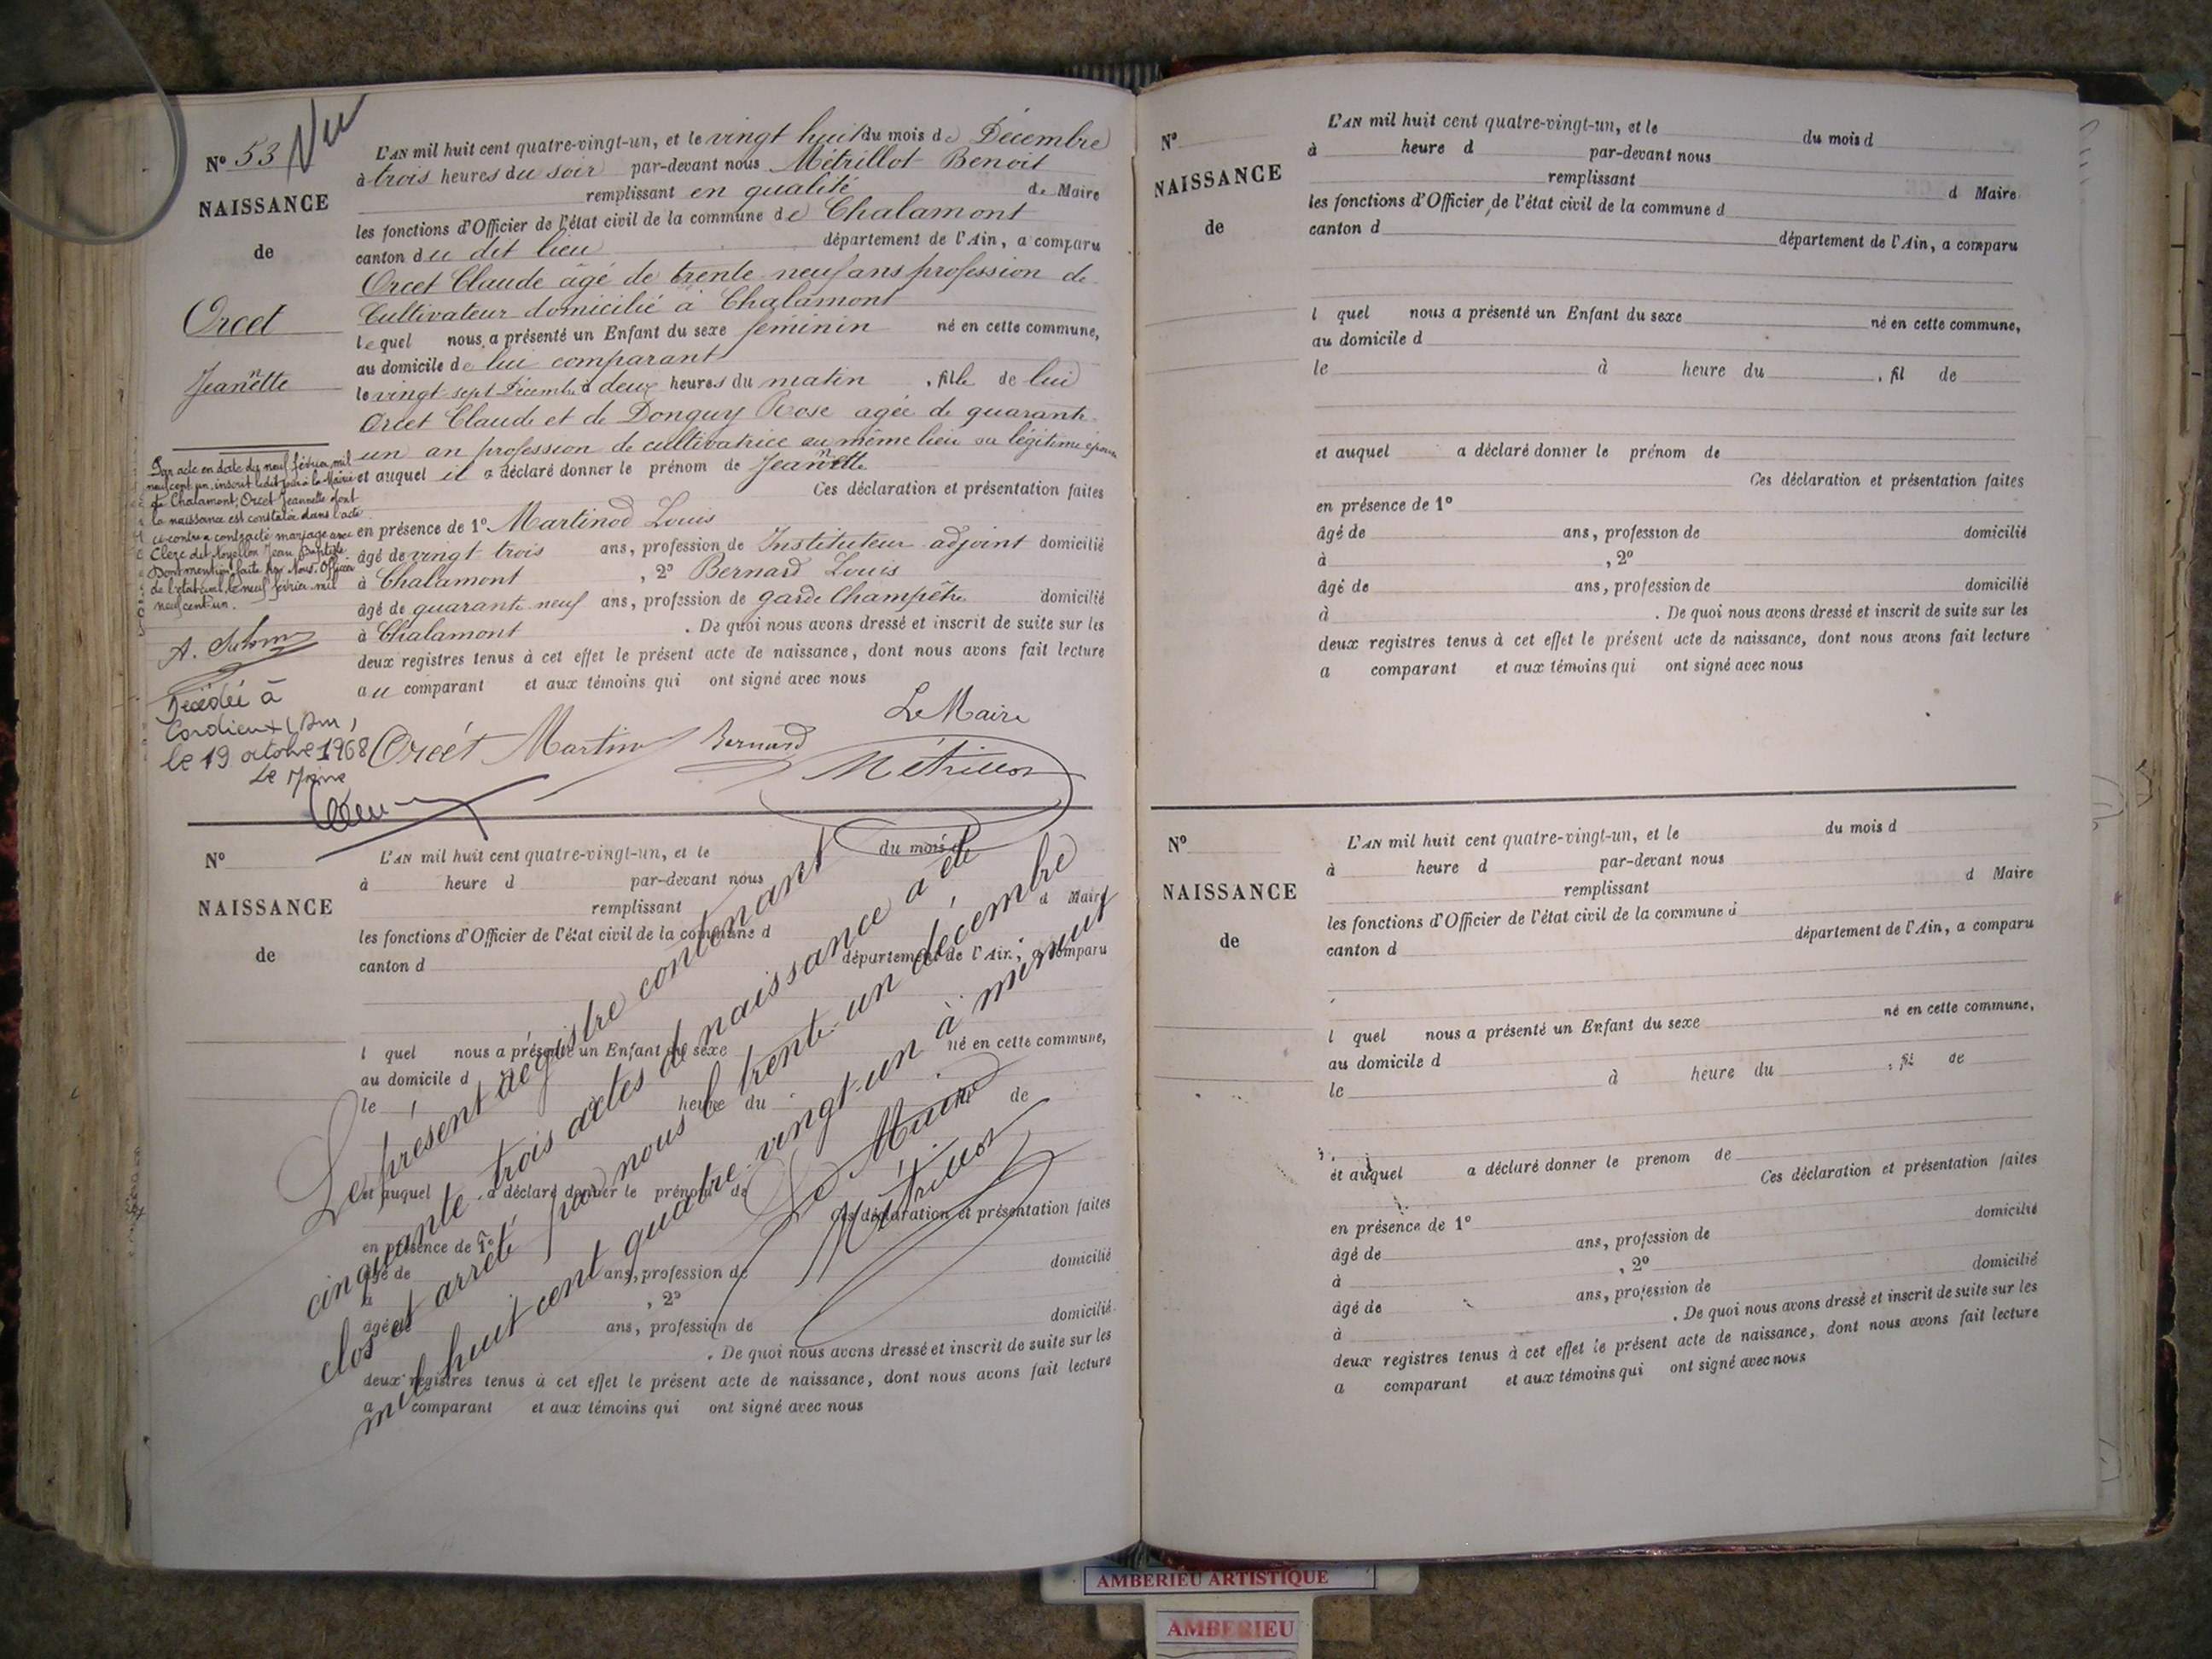 N° 53 Vu
NAISSANCE
de
Orcet
Jeannette
L'AN mil huit cent quatre-vingt-un, et le vingt huit du mois de Décembre
à trois heures du soir par-devant nous Métrillot Benoit
remplissant en qualité de Maire
les fonctions d'Officier de l'état civil de la commune de Chalamont
canton du dit lieu département de l'Ain, a comparu
Orcet Claude âgé de trente neuf ans profession de
Cultivateur domicilié à Chalamont
lequel nous a présenté un Enfant du sexe féminin né en cette commune,
au domicile de lui comparant
le vingt sept Décembre à deux heures du matin , fille de lui
Orcet Claude et de Donguy Rose agée de quarante
un an profession de cultivatrice au même lieu sa légitime épouse
et auquel il a déclaré donner le prénom de Jeannette
Ces déclaration et présentation faites
en présence de 1° Martinod Louis
âgé de vingt trois ans, profession de Instituteur adjoint domicilié
à Chalamont , 2° Bernard Louis
âgé de quarante neuf ans, profession de garde Champêtre domicilié
à Chalamont . De quoi nous avons dressé et inscrit de suite sur les
deux registres tenus à cet effet le présent acte de naissance, dont nous avons fait lecture
au comparant et aux témoins qui ont signé avec nous
Le Maire
Orcét Martin Bernard Métrillot
Par acte en date du neuf février mil
neuf cent un, inscrit ledit jour à la Mairie
de Chalamont, Orcet Jeannette dont
la naissance est constatée dans l'acte
ci contre a contracté mariage avec
Clerc dit Jean Baptiste
Dont mention faite par Nous Officier
de l'état civil le neuf février mil
neuf cent un.
Décédée à
Cordieux (Ain)
le 19 octobre 1968
Le Maire
N°
NAISSANCE
de
L'AN mil huit cent quatre-vingt-un, et le du mois d
à heure d par-devant nous
remplissant d Maire
les fonctions d'Officier de l'état civil de la commune d
canton d département de l'Ain, a comparu
l quel nous a présenté un Enfant du sexe né en cette commune,
au domicile d
le à heure du , fil de
et auquel a déclaré donner le prénom de
Ces déclaration et présentation faites
en présence de 1°
âgé de ans, profession de domicilié
à , 2°
âgé de ans, profession de domicilié
à . De quoi nous avons dressé et inscrit de suite sur les
deux registres tenus à cet effet le présent acte de naissance, dont nous avons fait lecture
a comparant et aux témoins qui ont signé avec nous
Le présent registre contenant
cinquante-trois actes de naissance a été
clos et arrêté par nous le trente-un décembre
mil huit cent quatre-vingt-un à minuit
Le Maire
Métrillot
N°
NAISSANCE
de
L'AN mil huit cent quatre-vingt-un, et le du mois d
à heure d par-devant nous
remplissant d Maire
les fonctions d'Officier de l'état civil de la commune d
canton d département de l'Ain, a comparu
l quel nous a présenté un Enfant du sexe né en cette commune,
au domicile d
le à heure du , fil de
et auquel a déclaré donner le prénom de
Ces déclaration et présentation faites
en présence de 1°
âgé de ans, profession de domicilié
à , 2°
âgé de ans, profession de domicilié
à . De quoi nous avons dressé et inscrit de suite sur les
deux registres tenus à cet effet le présent acte de naissance, dont nous avons fait lecture
a comparant et aux témoins qui ont signé avec nous
N°
NAISSANCE
de
L'AN mil huit cent quatre-vingt-un, et le du mois d
à heure d par-devant nous
remplissant d Maire
les fonctions d'Officier de l'état civil de la commune d
canton d département de l'Ain, a comparu
l quel nous a présenté un Enfant du sexe né en cette commune,
au domicile d
le à heure du , fil de
et auquel a déclaré donner le prenom de
Ces déclaration et présentation faites
en présence de 1°
âgé de ans, profession de domicilié
à , 2°
âgé de ans, profession de domicilié
à . De quoi nous avons dressé et inscrit de suite sur les
deux registres tenus à cet effet le présent acte de naissance, dont nous avons fait lecture
a comparant et aux témoins qui ont signé avec nous
AMBERIEU ARTISTIQUE
AMBERIEU